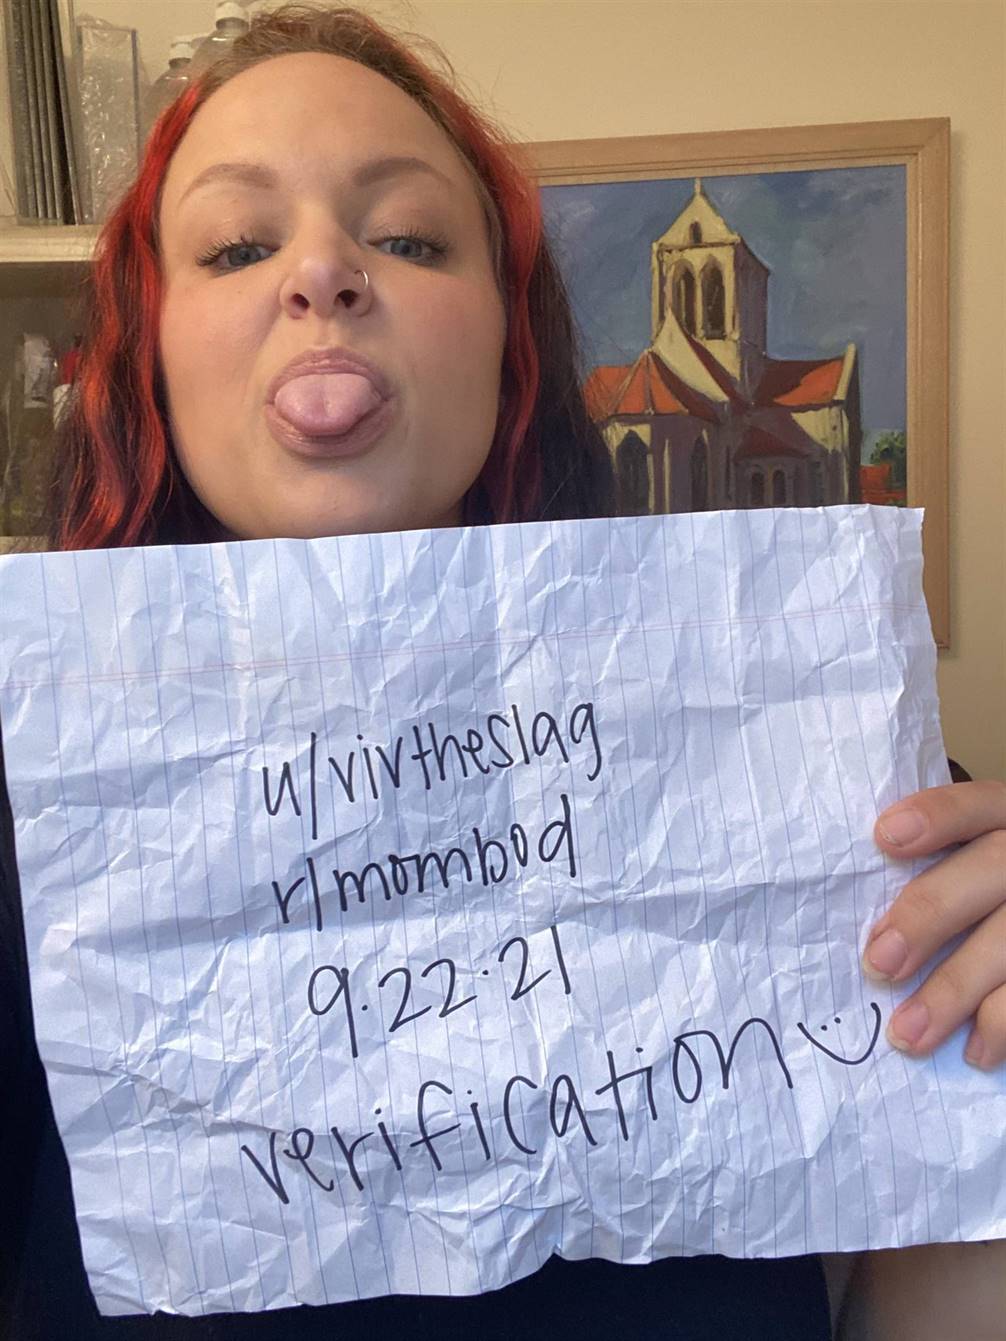 u/vivtheslag
r/mombod
9.22.21
verification :)